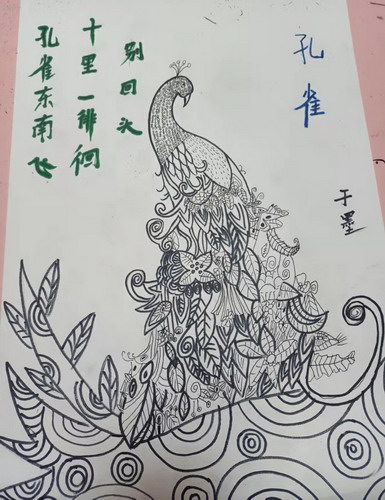 孔雀
孔雀东南飞
十里一徘徊
别回头
于墨